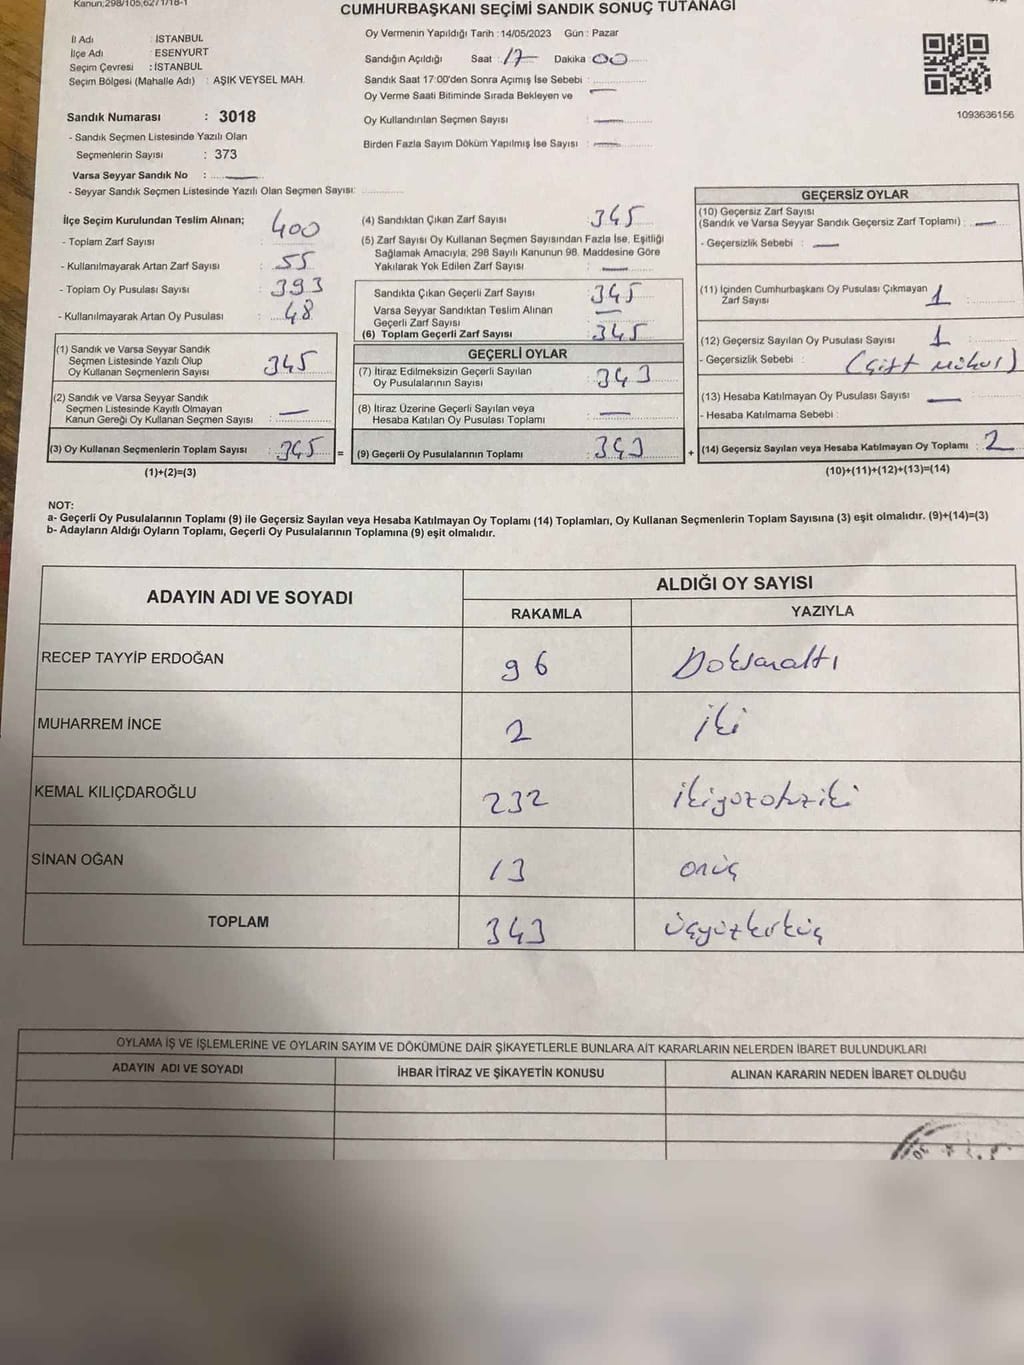 Kanun;298/105,627/1/18-1
CUMHURBAŞKANI SEÇİMİ SANDIK SONUÇ TUTANAĞI
İl Adı : İSTANBUL
İlçe Adı : ESENYURT
Seçim Çevresi : İSTANBUL
Seçim Bölgesi (Mahalle Adı) : AŞIK VEYSEL MAH.
Oy Vermenin Yapıldığı Tarih : 14/05/2023 Gün : Pazar
Sandığın Açıldığı Saat : 17 Dakika 00
Sandık Saat 17:00'den Sonra Açımış İse Sebebi :
Oy Verme Saati Bitiminde Sırada Bekleyen ve
Oy Kullandırılan Seçmen Sayısı : —
Birden Fazla Sayım Döküm Yapılmış İse Sayısı : —
1093636156
Sandık Numarası : 3018
- Sandık Seçmen Listesinde Yazılı Olan
Seçmenlerin Sayısı : 373
Varsa Seyyar Sandık No : —
- Seyyar Sandık Seçmen Listesinde Yazılı Olan Seçmen Sayısı:
İlçe Seçim Kurulundan Teslim Alınan;
- Toplam Zarf Sayısı : 400
- Kullanılmayarak Artan Zarf Sayısı : 55
- Toplam Oy Pusulası Sayısı : 393
- Kullanılmayarak Artan Oy Pusulası : 48
(1) Sandık ve Varsa Seyyar Sandık
Seçmen Listesinde Yazılı Olup
Oy Kullanan Seçmenlerin Sayısı : 345
(2) Sandık ve Varsa Seyyar Sandık
Seçmen Listesinde Kayıtlı Olmayan
Kanun Gereği Oy Kullanan Seçmen Sayısı : —
(3) Oy Kullanan Seçmenlerin Toplam Sayısı : 345 =
(1)+(2)=(3)
(4) Sandıktan Çıkan Zarf Sayısı : 345
(5) Zarf Sayısı Oy Kullanan Seçmen Sayısından Fazla İse, Eşitliği
Sağlamak Amacıyla, 298 Sayılı Kanunun 98. Maddesine Göre
Yakılarak Yok Edilen Zarf Sayısı : —
Sandıkta Çıkan Geçerli Zarf Sayısı : 345
Varsa Seyyar Sandıktan Teslim Alınan
Geçerli Zarf Sayısı : —
(6) Toplam Geçerli Zarf Sayısı : 345
GEÇERLİ OYLAR
(7) İtiraz Edilmeksizin Geçerli Sayılan
Oy Pusulalarının Sayısı : 343
(8) İtiraz Üzerine Geçerli Sayılan veya
Hesaba Katılan Oy Pusulası Toplamı : —
(9) Geçerli Oy Pusulalarının Toplamı : 343 +
GEÇERSİZ OYLAR
(10) Geçersiz Zarf Sayısı
(Sandık ve Varsa Seyyar Sandık Geçersiz Zarf Toplamı) : —
- Geçersizlik Sebebi : —
(11) İçinden Cumhurbaşkanı Oy Pusulası Çıkmayan
Zarf Sayısı : 1
(12) Geçersiz Sayılan Oy Pusulası Sayısı : 1
- Geçersizlik Sebebi : (Çift mühür)
(13) Hesaba Katılmayan Oy Pusulası Sayısı : —
- Hesaba Katılmama Sebebi :
(14) Geçersiz Sayılan veya Hesaba Katılmayan Oy Toplamı : 2
(10)+(11)+(12)+(13)=(14)
NOT:
a- Geçerli Oy Pusulalarının Toplamı (9) ile Geçersiz Sayılan veya Hesaba Katılmayan Oy Toplamı (14) Toplamları, Oy Kullanan Seçmenlerin Toplam Sayısına (3) eşit olmalıdır. (9)+(14)=(3)
b- Adayların Aldığı Oyların Toplamı, Geçerli Oy Pusulalarının Toplamına (9) eşit olmalıdır.
ADAYIN ADI VE SOYADI
ALDIĞI OY SAYISI
RAKAMLA YAZIYLA
RECEP TAYYİP ERDOĞAN 96 Doksanaltı
MUHARREM İNCE 2 iki
KEMAL KILIÇDAROĞLU 232 ikiyüzotuziki
SİNAN OĞAN 13 onüç
TOPLAM 343 üçyüzkırküç
OYLAMA İŞ VE İŞLEMLERİNE VE OYLARIN SAYIM VE DÖKÜMÜNE DAİR ŞİKAYETLERLE BUNLARA AİT KARARLARIN NELERDEN İBARET BULUNDUKLARI
ADAYIN ADI VE SOYADI İHBAR İTİRAZ VE ŞİKAYETİN KONUSU ALINAN KARARIN NEDEN İBARET OLDUĞU